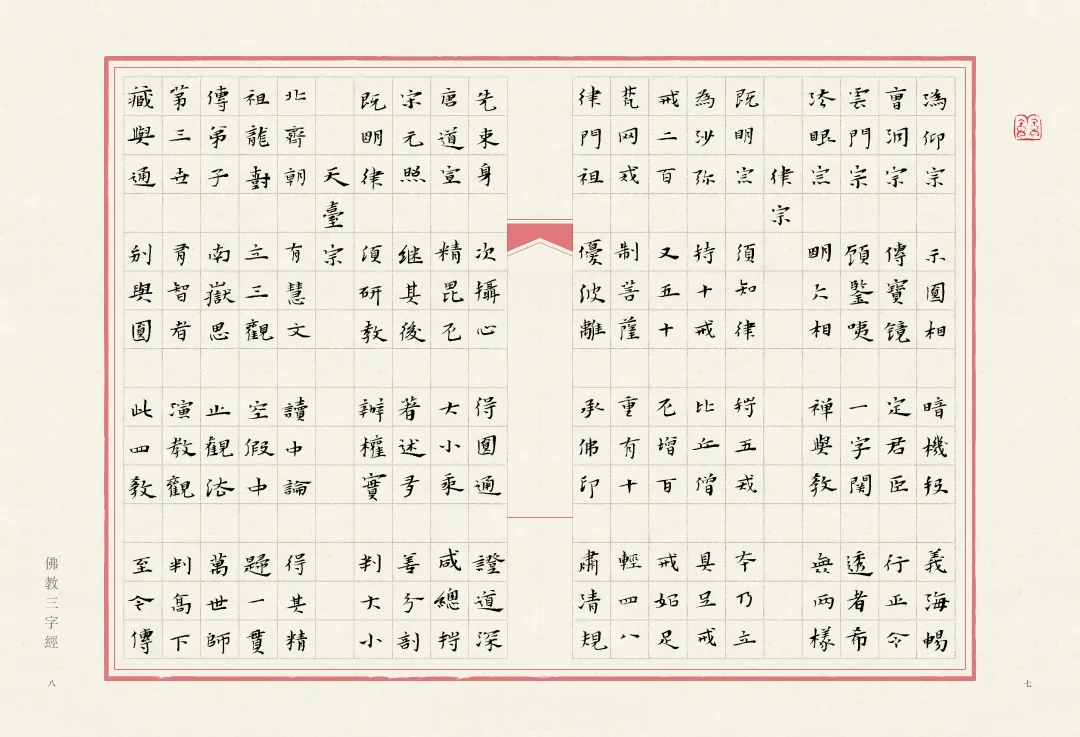 溈仰宗 示圓相 暗機投 義海暢
曹洞宗 傳寶镜 定君臣 行正令
雲門宗 顧鑒咦 一字関 透者希
法眼宗 明六相 禅與教 無兩樣
律宗
既明宗 須知律 持五戒 本乃立
為沙弥 持十戒 比丘僧 具足戒
戒二百 又五十 尼增百 戒如足
梵网戒 制菩薩 重有十 輕四八
律門祖 優波離 承佛印 肅清規
七
先束身 次攝心 得圓通 證道深
唐道宣 精毘尼 大小乘 咸總持
宋元照 继其後 著述多 善分割
既明律 須研教 辨權實 判大小
天臺宗
北齊朝 有慧文 讀中論 得其精
祖龍樹 立三觀 空假中 歸一貫
傳弟子 南嶽思 止觀法 萬世師
第三世 有智者 演教觀 判高下
藏與通 别與圓 此四教 至今傳
佛教三字經
八